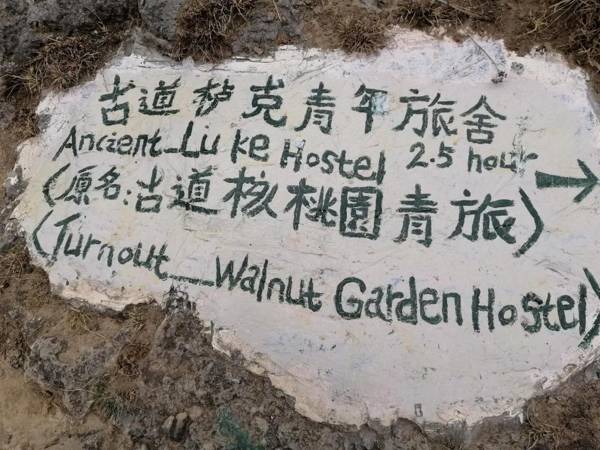 古道栌克青年旅舍
Ancient_Lu ke Hostel 2.5 hour
(原名:古道核桃園青旅)
(Turnout_Walnut Garden Hostel)